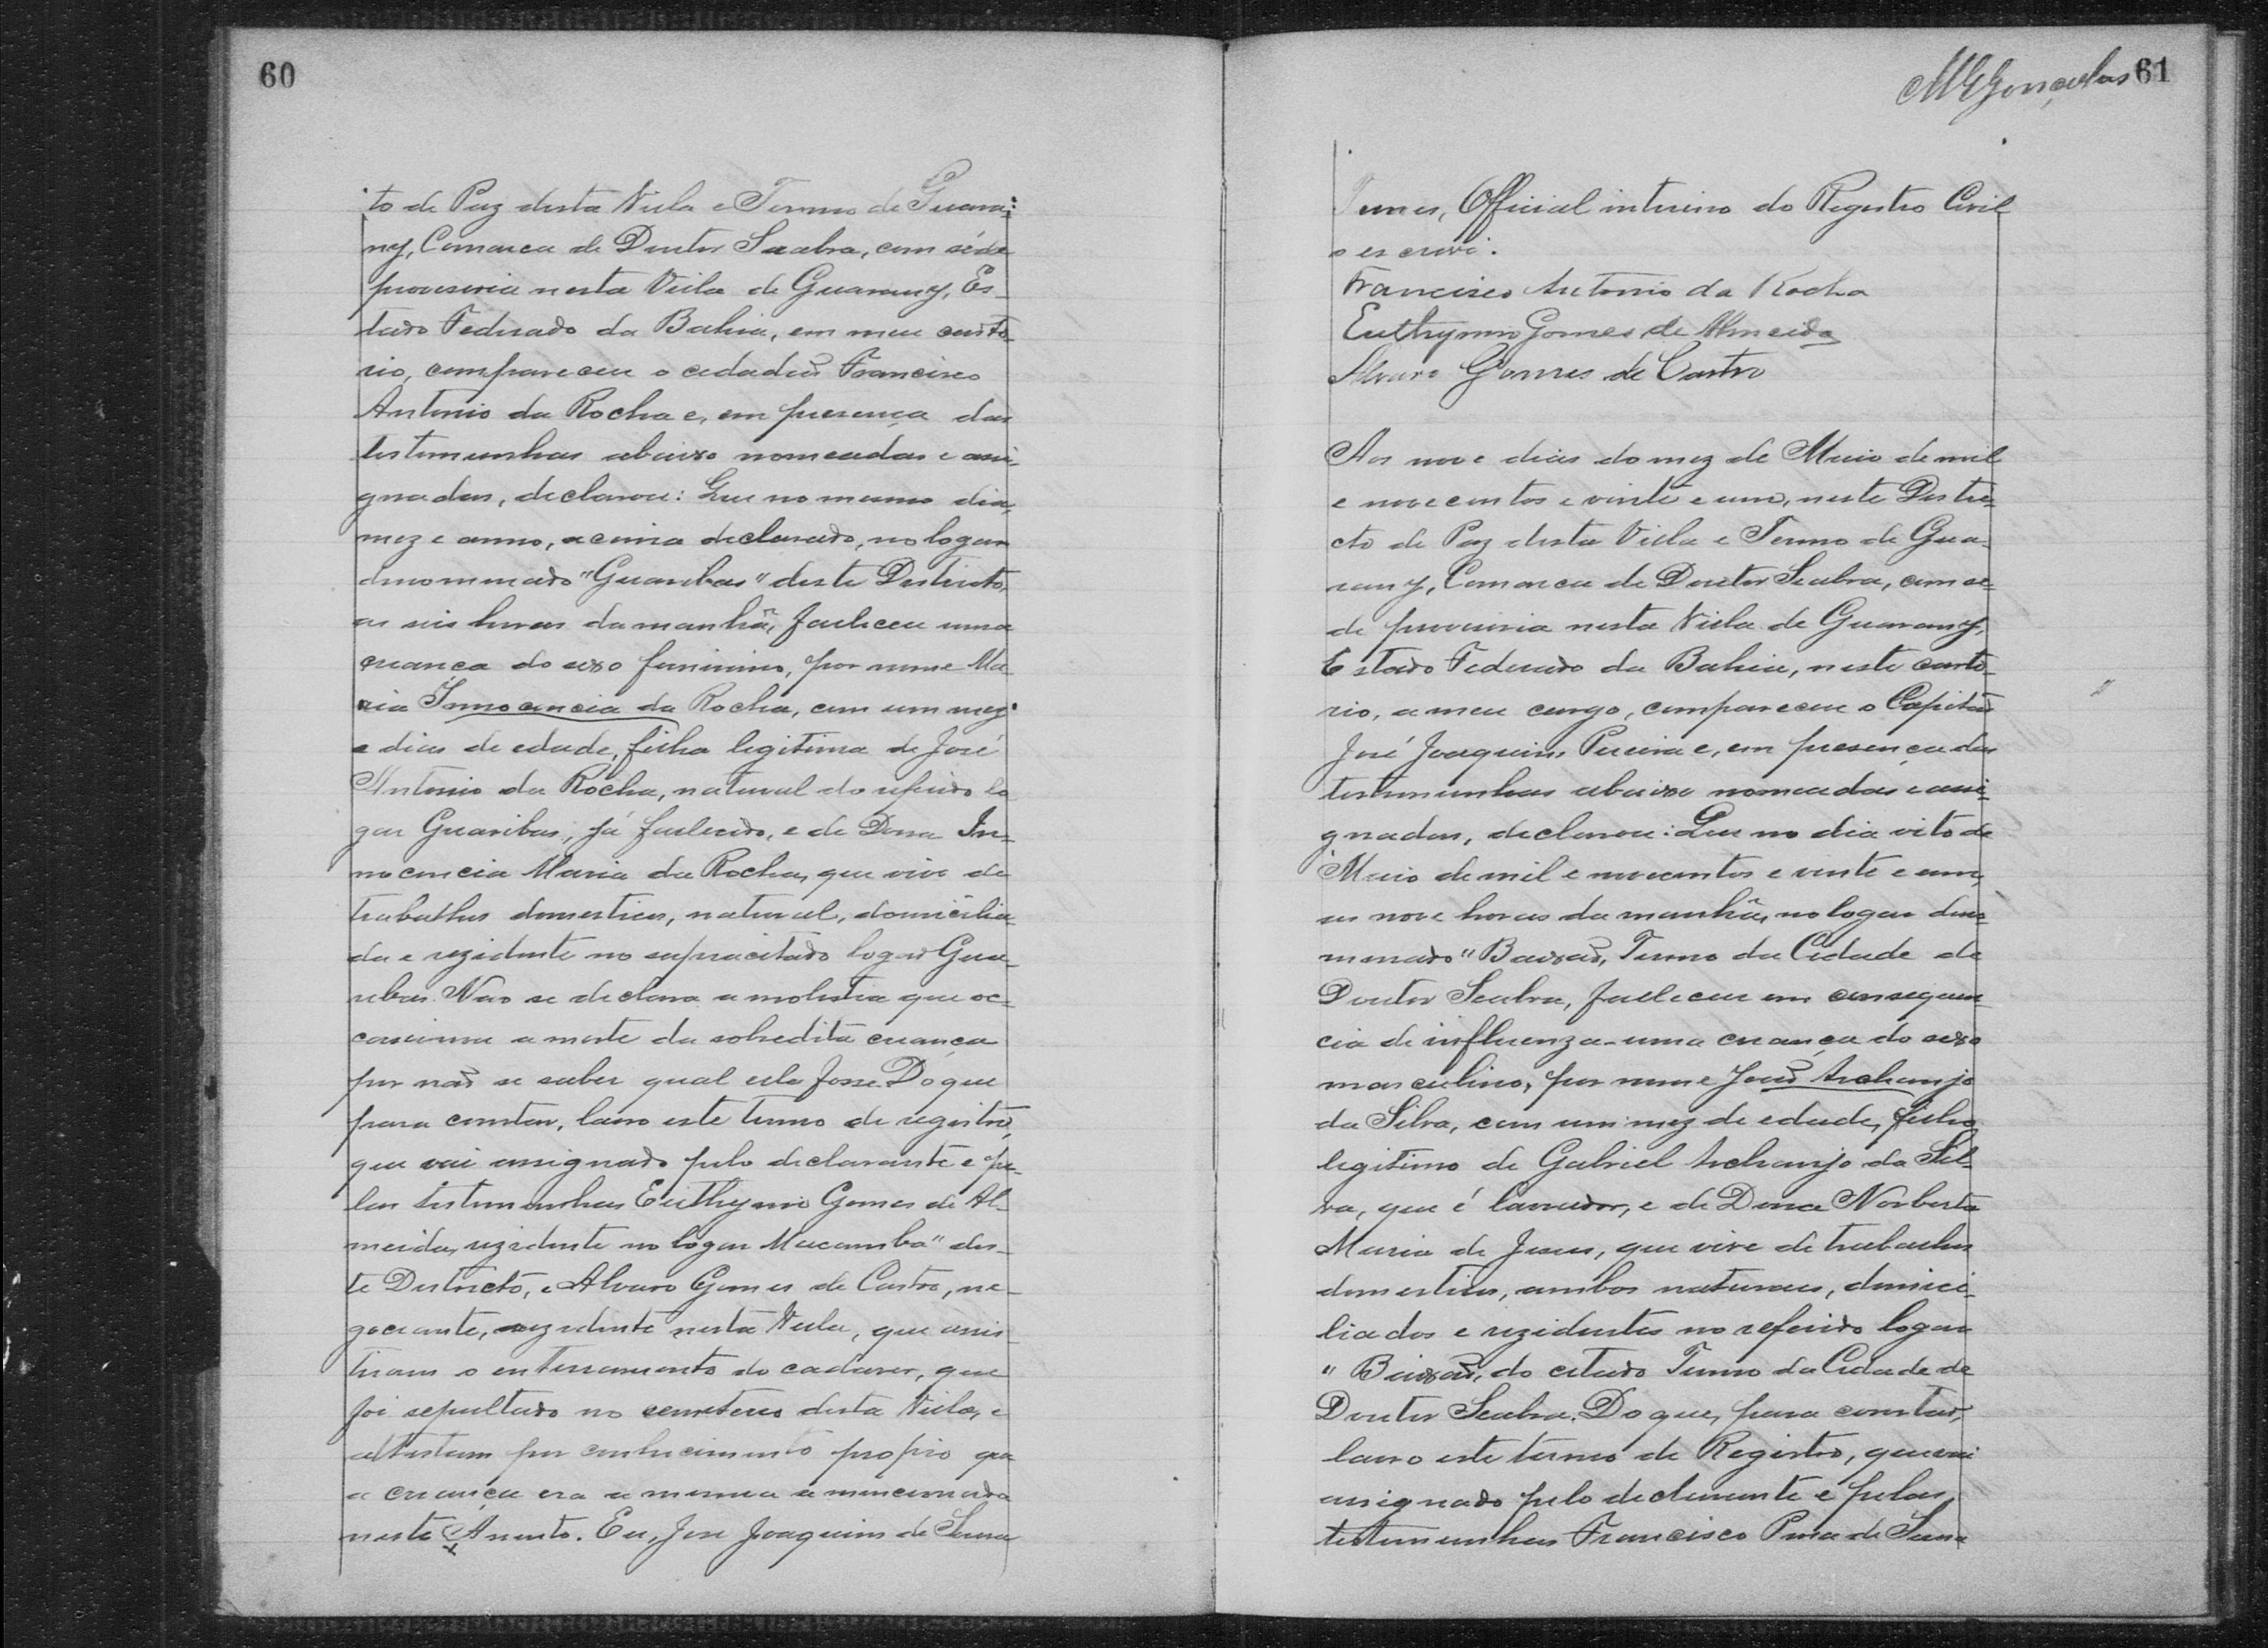 60
to de Paz desta Villa e Termo de Guara-
ny, Comarca de Doutor Seabra, com séde
provisoria nesta Villa de Guarany, Es-
tado Federado da Bahia, em meu carto-
rio, compareceu o cidadão Francisco
Antonio da Rocha e, em presença das
testemunhas abaixo nomeadas e assi-
gnadas, declarou: Que no mesmo dia,
mez e anno, acima declarado, no logar
denominado "Guaribas" deste Destricto,
as seis horas da manhã, falleceu uma
creança do sexo feminino, por nome Ma-
ria Innocencia da Rocha, com um mez
e dias de edade, filha legitima de José
Antonio da Rocha, natural do referido lo
gar Guaribas, já fallecido, e de Dona In-
nocencia Maria da Rocha, que vive de
trabalhos domesticos, natural, domicilia-
da e rezidente no supracitado logar Gua-
ribas. Não se declara a molestia que oc-
casionou a morte da sobredita creança
por não se saber qual ella fosse. Do que
para constar, lavro este termo de registro,
que vai assignado pelo declarante e pe-
las testemunhas Euthymio Gomes de Al-
meida, rezidente no logar Mucambo" des-
te Destricto, e Alvaro Gomes de Castro, ne-
gociante, rezidente nesta Villa, que assis-
tiram o enterramento do cadaver, que
foi sepultado no cemeterio desta Villa, e
attestam por conhecimento proprio que
a creança era a mesma a mencionada
neste Assento. Eu, José Joaquim de Senna
MGGonçalves 61
Termes, Official interino do Registro Civil
o escrevi.
Francisco Antonio da Rocha
Euthymio Gomes de Almeida
Alvaro Gomes de Castro
Aos nove dias do mez de Maio de mil
e novecentos e vinte e um, neste Destri-
cto de Paz desta Villa e Termo de Gua-
rany, Comarca de Doutor Seabra, com se-
de provisoria nesta Villa de Guarany,
Estado Federado da Bahia, neste carto-
rio, a meu cargo, compareceu o Capitão
José Joaquim Pereira e, em presença das
testemunhas abaixo nomeadas e assi-
gnadas, declarou: Que no dia oito de
Maio de mil e novecentos e vinte e um,
as nove horas da manhã, no logar deno-
minado "Baixão, Termo da Cidade de
Doutor Seabra, falleceu em consequen-
cia de influenza uma creança do sexo
masculino, por nome João Archanjo
da Silva, com um mez de edade, filho
legitimo de Gabriel Archanjo da Sil-
va, que é lavrador, e de Dona Norberta
Maria de Jesus, que vive de trabalhos
domesticos, ambos naturaes, domici-
liados e rezidentes no referido logar
"Baixão, do citado Termo da Cidade de
Doutor Seabra. Do que, para constar,
lavro este termo de Registro, que vai
assignado pelo declarante e pelas
testemunhas Francisco de Senna